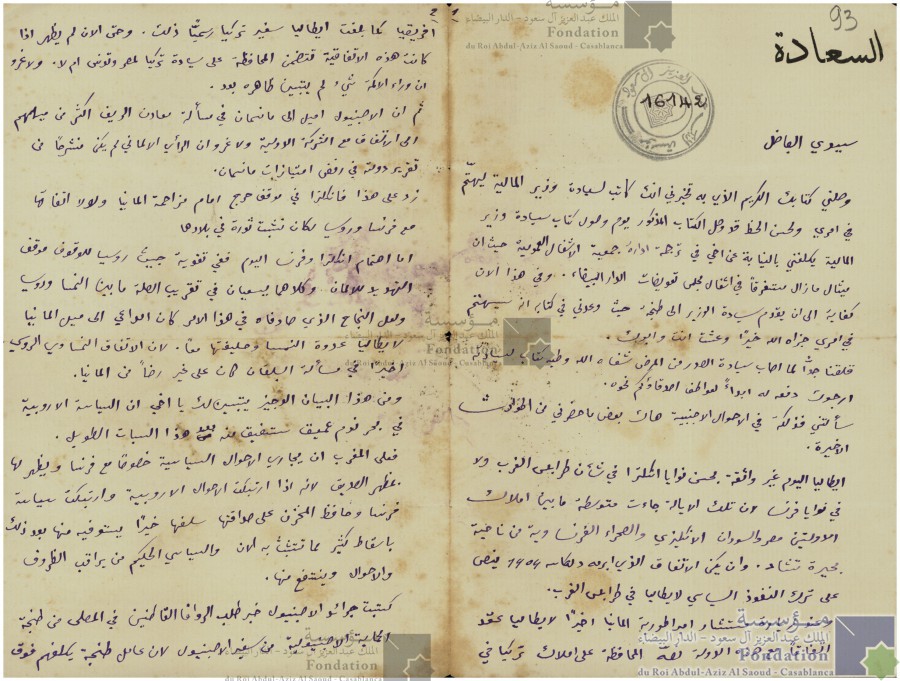 93
السعادة
16142
سيدي الفاضل
وصلني كتابك الكريم الذي به تخبرني انك كاتب لسيادة وزير المالية ليهتم
في امري ولحسن الحظ قد وصل الكتاب المذكور يوم وصول كتاب سيادة وزير
المالية يكلفني بالنيابة عن اخي في ترجمة ادارة جمعية الاشغال العمومية حيث ان
ميثال مازال مستغرقاً في اشغال مجلس تعويضات الدار البيضاء. وفي هذا الان
كفاية الى ان يقدم سيادة الوزير الى طنجة حيث وعدني في كتابه انه سيهتم
في امري جزاه الله خيرًا وعشت انت وابوك.
قلقنا جدًا لما اصاب سيادة الصدر من المرض شفاه الله وطيه كتاب لسيادتكم
ارجوك دفعه له ابدأً لعواطف نحوه.
سألتني فذلكة في الاحوال الاجنبية هاك بعض ما حضرني من الحوادث
الاخيرة.
ايطاليا اليوم غير واثقة بحسن نوايا انكلترا في شأن طرابلس الغرب ولا
في نوايا فرنسا لان تلك الايالة جاءت متوسطة ما بين املاك
الاولتين مصر والسودان الانكليزي والصحراء الفرنساوية من ناحية
بحيرة تشاد. وان يكن الاتفاق الذي ابرمه دلكاسه 1904 ينص
على ترك النفوذ السياسي لايطاليا في طرابلس الغرب.
مستشار امبراطورية المانيا اخيرًا لايطاليا عقد
اتفاقاً مع هذه الدولة المحافظة على املاك تركيا في
2
افريقيا كما بلغت ايطاليا سفير تركيا رسميًّا ذلك. وحتى الان لم يظهر اذا
كانت هذه الاتفاقية تتضمن المحافظة على سيادة تركيا لمصر وتونس ام لا. ولا غرو
ان وراء الاكمة شيء لم يتبين ظاهره بعد.
ثم ان الاصبنيول اميل الى مانسمان في مسألة معادن الريف اكثر من ميلهم
الى الاتفاق مع الشركة الدولية ولا غرو ان الرأي الالماني لم يكن منشرحًا من
تقرير دولته في رفض امتيازات مانسمان.
زد على هذا فانكلترا في موقف حرج امام مزاحمة المانيا ولولا اتفاقها
مع فرنسا وروسيا لكان نشبت ثورة في بلادها
اما اهتمام انكلترا وفرنسا اليوم ففي تقوية جيش روسيا للوقوف موقف
التهديد للالمان وكلاهما يسعيان في تقريب الصلة ما بين النمسا وروسيا
ولعل النجاح الذي صادفاه في هذا الامر كان الداعي الى ميل المانيا
لايطاليا عدوة النمسا وحليفتها معًا. لان الاتفاق النمساوي الروسي
اخيرًا في مسألة البلقان كان على غير رضاً من المانيا.
ومن هذا البيان الوجيز يتبين لك يا اخي ان السياسة الاروبية
في بحر نوم عميق ستفيق منه بعد هذا السبات الطويل.
فعلى المغرب ان يجاري الاحوال السياسية خصوصًا مع فرنسا ويظهر لها
بمظهر الصديق لانه اذا ارتبكت الاحوال الاروبية وارتبكت سياسة
فرنسا وحافظ المخزن على صداقتها سلفها خيرًا يستوفيه منها بعد ذلك
باسقاط كثير مما تتشبث به الان والسياسي الحكيم من يراقب الظروف
والاحوال وينتفع منها.
كتبت جرائد الاصبنيول خبر طلب الروافا القاطنين في المصلى من طنجة
الحماية الاصبنيولية من سفير الاصبنيول لان عامل طنجة يكلفهم فوق
مؤسسة
الملك عبد العزيز آل سعود - الدار البيضاء
Fondation
du Roi Abdul-Aziz Al Saoud - Casablanca